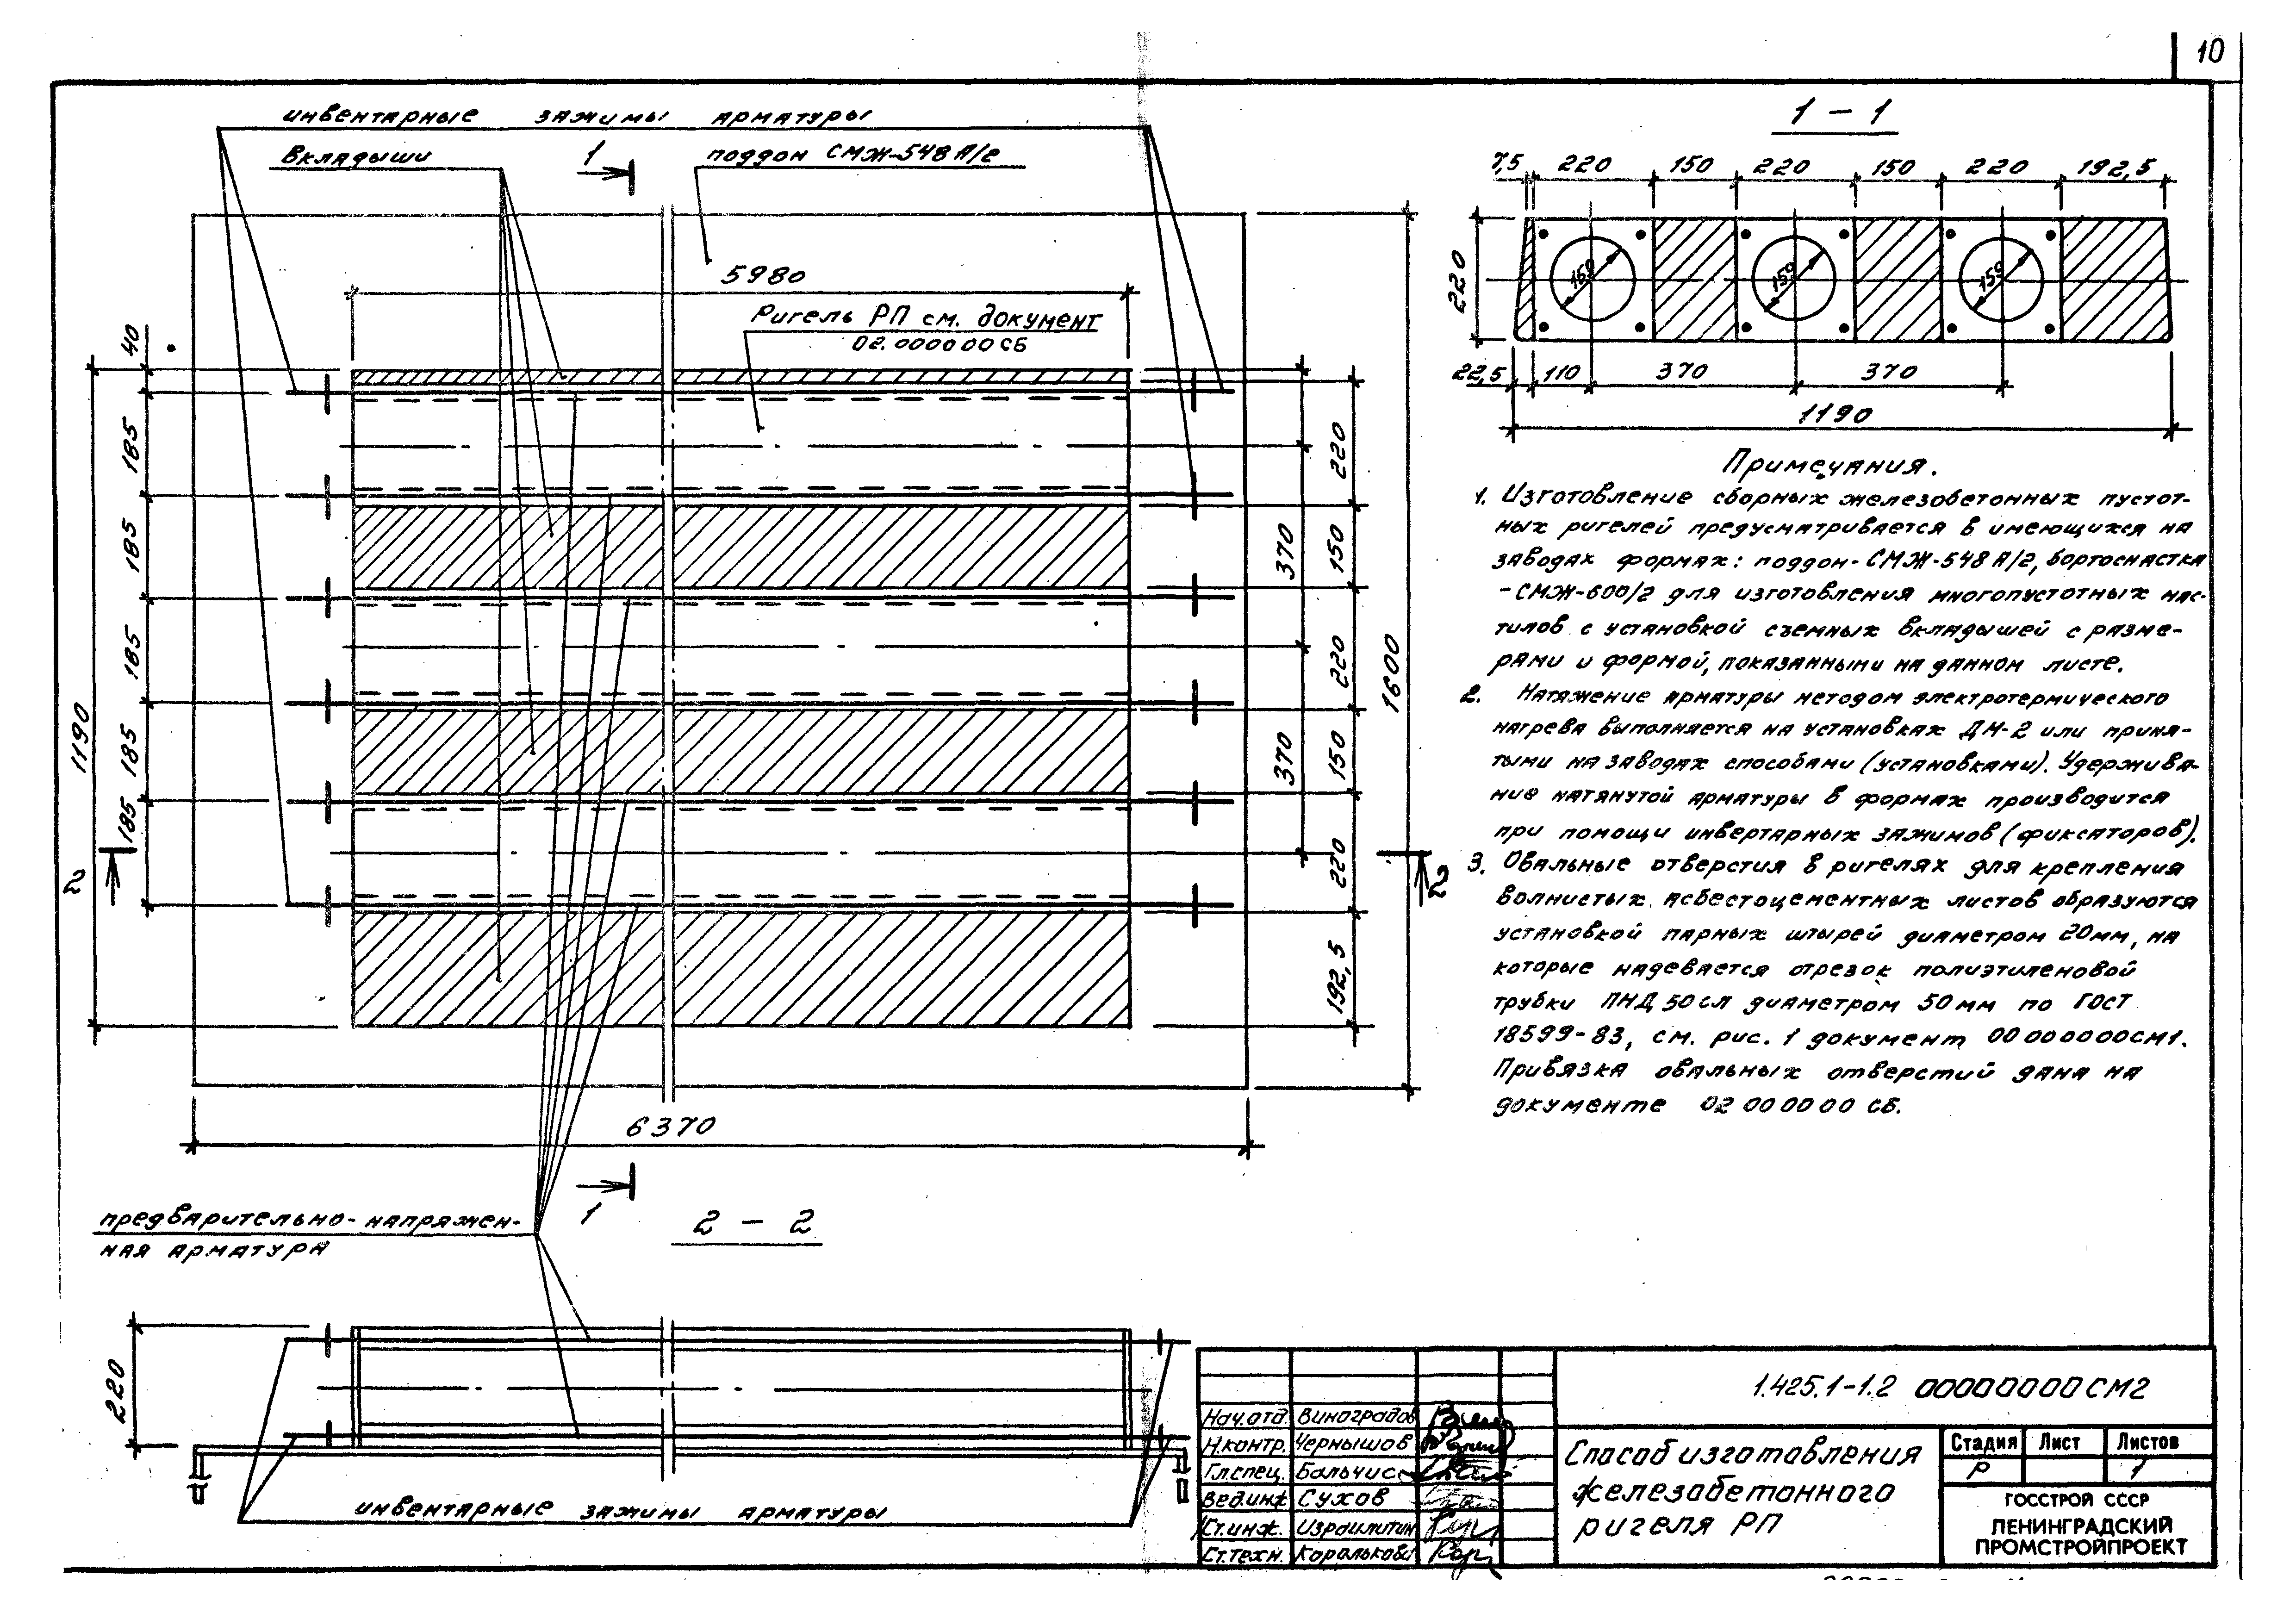 10
инвентарные зажимы арматуры
вкладыши
1
поддон СМЖ-548 А/2
5980
Ригель РП см. документ
02.000000СБ
40
185
185
185
185
185
1190
2
370
370
220
150
220
150
220
192,5
1600
2
6370
1
предварительно-напряжен-
ная арматура
1 - 1
7,5 220 150 220 150 220 192,5
220
159 159 159
22,5 110 370 370
1190
Примечания.
1. Изготовление сборных железобетонных пустот-
ных ригелей предусматривается в имеющихся на
заводах формах: поддон-СМЖ-548 А/2, бортоснастка
-СМЖ-600/2 для изготовления многопустотных нас-
тилов с установкой съемных вкладышей с разме-
рами и формой, показанными на данном листе.
2. Натяжение арматуры методом электротермического
нагрева выполняется на установках ДН-2 или приня-
тыми на заводах способами (установками). Удержива-
ние натянутой арматуры в формах производится
при помощи инвертарных зажимов (фиксаторов).
3. Овальные отверстия в ригелях для крепления
волнистых асбестоцементных листов образуются
установкой парных штырей диаметром 20мм, на
которые надевается отрезок полиэтиленовой
трубки ПНД 50сл диаметром 50мм по ГОСТ
18599-83, см. рис. 1 документ 00 000000СМ1.
Привязка овальных отверстий дана на
документе 02 000000 СБ.
2 - 2
220
инвентарные зажимы арматуры
1.425.1-1.2 00000000СМ2
Нач.отд. Виноградов
Н.контр. Чернышов
Гл.спец. Бальчис
Вед.инж Сухов
Ст.инж. Израилитин
Ст.техн. Коралькова
Способ изготовления
железобетонного
ригеля РП
Стадия Лист Листов
Р 1
ГОССТРОЙ СССР
ЛЕНИНГРАДСКИЙ
ПРОМСТРОЙПРОЕКТ